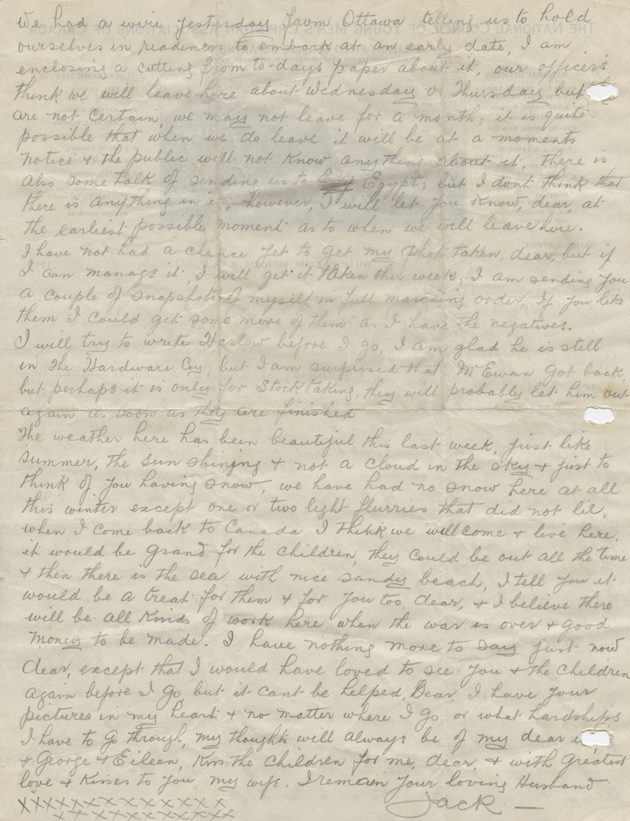 We had a wire yesterday from Ottawa telling us to hold
ourselves in readiness to embark at an early date, I am
enclosing a cutting from to-days paper about it, our officers
think we will leave here about Wednesday or Thursday but
are not certain, we may not leave for a month; it is quite
possible that when we do leave it will be at a moments
notice & the public will not know anything about it, there is
also some talk of sending us to Egypt; but I dont think that
there is anything in it, however, I will let you know, dear, at
the earliest possible moment as to when we will leave here.
I have not had a chance yet to get my photo taken, dear, but if
I can manage it, I will get it taken this week, I am sending you
a couple of snapshots of myself in full marching order. If you like
them I could get some more of them as I have the negatives.
I will try to write before I go, I am glad he is still
in the Hardware Coy, but I am surprised that McEwan got back,
but perhaps it is only for stock taking, they will probably let him out
again as soon as they are finished
The weather here has been beautiful this last week, just like
summer, the sun shining & not a cloud in the sky & just to
think of you having snow, we have had no snow here at all
this winter except one or two light flurries that did not lie,
when I come back to Canada I think we will come & live here,
it would be grand for the children, they could be out all the time
& then there is the sea with nice sandy beach, I tell you it
would be a treat for them & for you too, dear, & I believe there
will be all kinds of work here when the war is over & good
money to be made. I have nothing more to say just now
dear, except that I would have loved to see you & the children
again before I go, but it cant be helped, Dear, I have your
pictures in my heart & no matter where I go or what hardships
I have to go through, my thoughts will always be of my dear
& George & Eileen, Kiss the children for me, dear & with greatest
love & kisses to you my wife. I remain your loving Husband
XXXXXXXXXXXXX Jack —
XXXXXXXXXXX